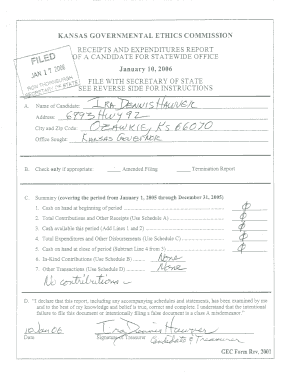 KANSAS GOVERNMENTAL ETHICS COMMISSION
RECEIPTS AND EXPENDITURES REPORT
OF A CANDIDATE FOR STATEWIDE OFFICE
January 10, 2006
FILE WITH SECRETARY OF STATE
SEE REVERSE SIDE FOR INSTRUCTIONS
FILED
JAN 17 2006
RON THORNBURGH
SECRETARY OF STATE
A. Name of Candidate: Ira Dennis Hawver
Address: 6993 Hwy 92
City and Zip Code: Ozawkie, Ks 66070
Office Sought: Kansas Governor
B. Check only if appropriate: Amended Filing Termination Report
C. Summary (covering the period from January 1, 2005 through December 31, 2005)
1. Cash on hand at beginning of period ϕ
2. Total Contributions and Other Receipts (Use Schedule A) ϕ
3. Cash available this period (Add Lines 1 and 2) ϕ
4. Total Expenditures and Other Disbursements (Use Schedule C) ϕ
5. Cash on hand at close of period (Subtract Line 4 from 3) ϕ
6. In-Kind Contributions (Use Schedule B) None
7. Other Transactions (Use Schedule D) None
No contributions
D. "I declare that this report, including any accompanying schedules and statements, has been examined by me
and to the best of my knowledge and belief is true, correct and complete. I understand that the intentional
failure to file this document or intentionally filing a false document is a class A misdemeanor."
10 Jan 06 Ira Dennis Hawver
Date Signature of Treasurer Candidate & Treasurer
GEC Form Rev. 2005